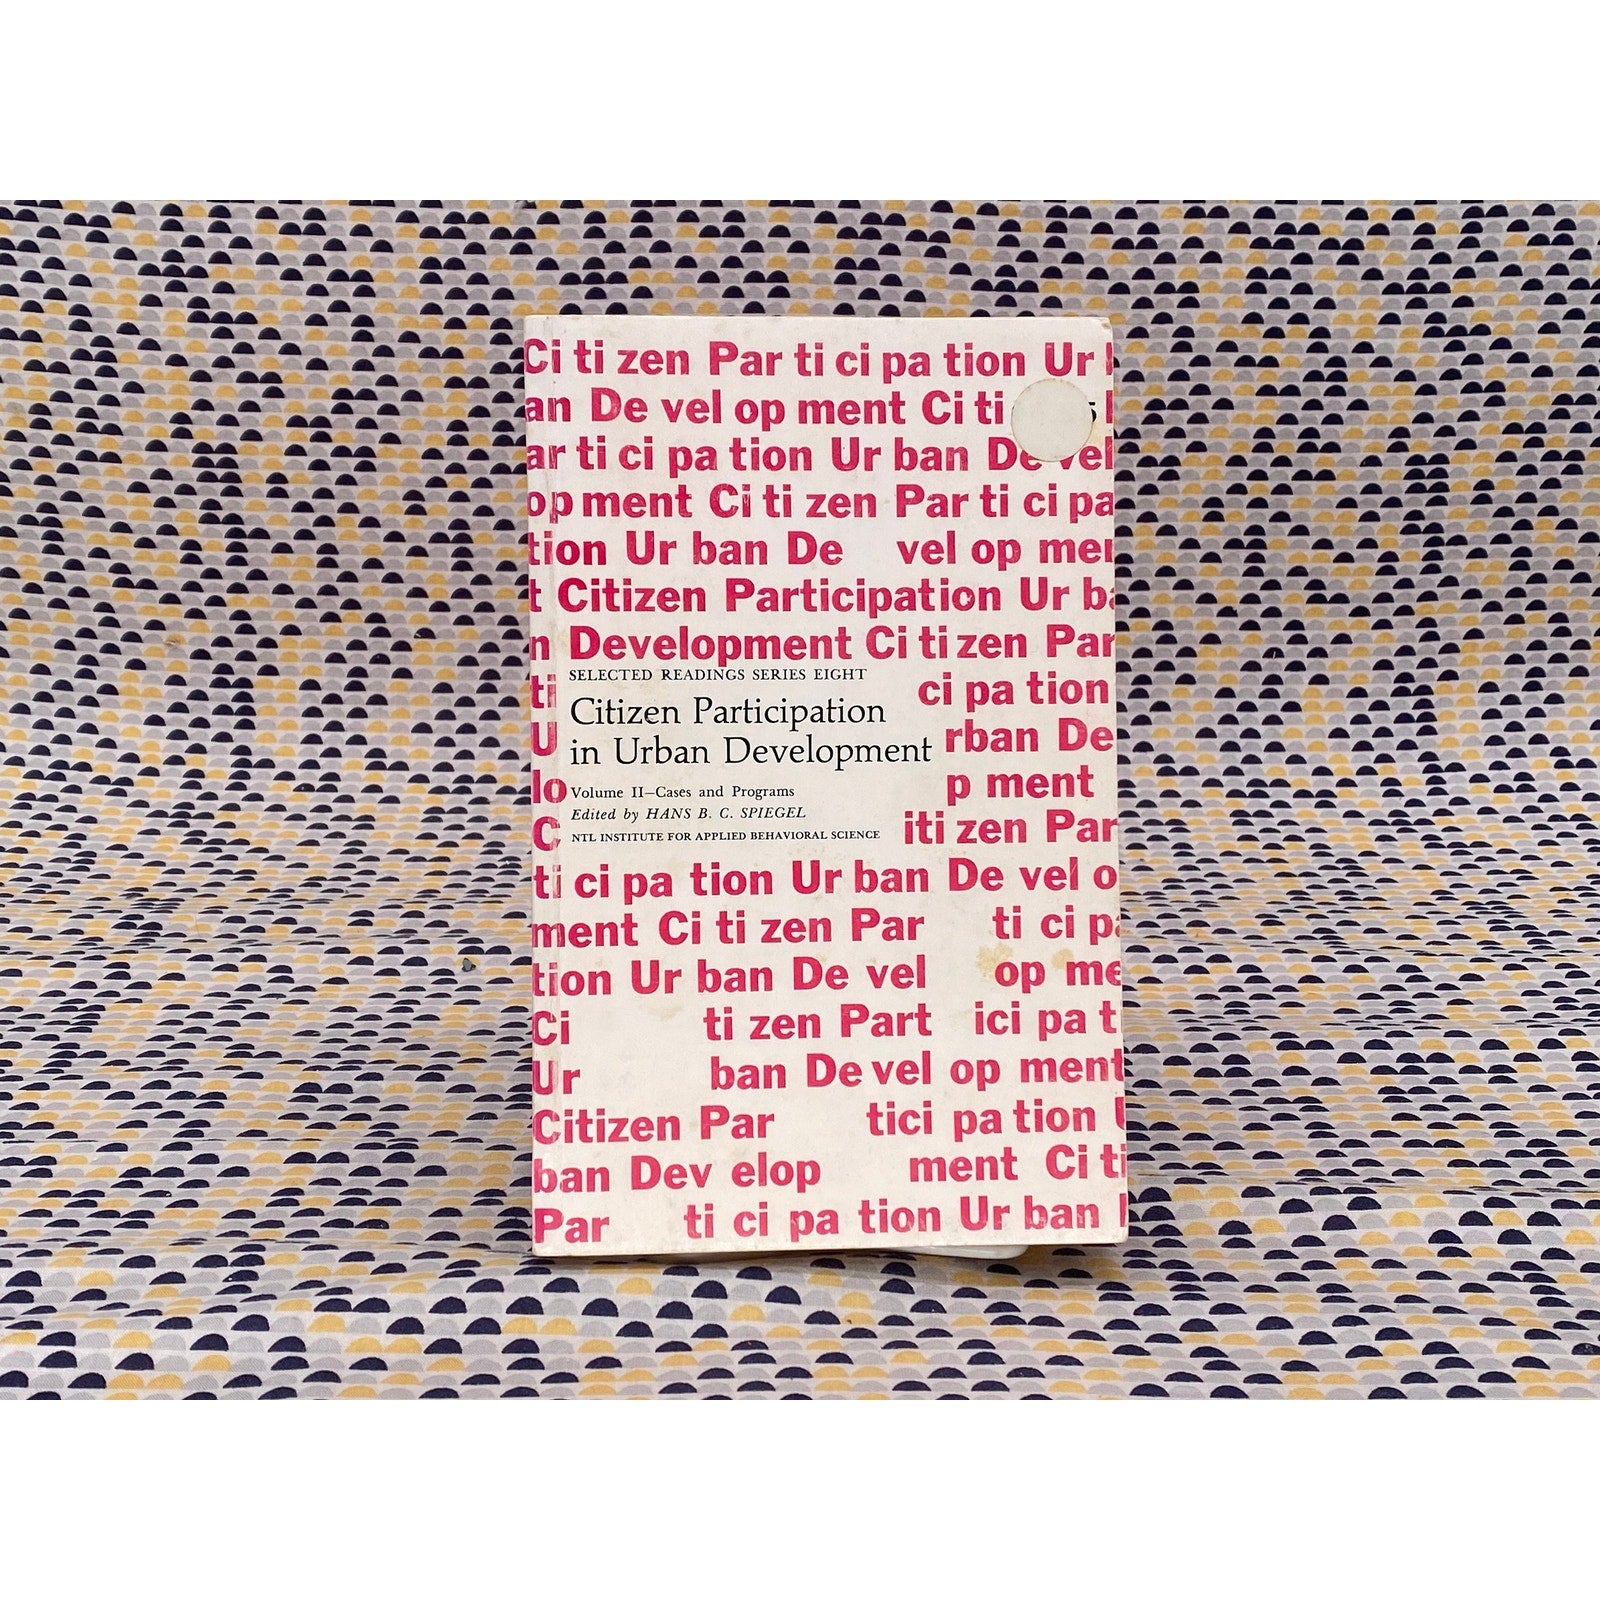 Ci ti zen Par ti ci pa tion Ur
an De vel op ment Ci ti 5
ar ti ci pa tion Ur ban De vel
op ment Ci ti zen Par ti ci pa
tion Ur ban De vel op men
t Citizen Participation Ur ba
n Development Ci ti zen Par
SELECTED READINGS SERIES EIGHT
ti ci pa tion
Citizen Participation
U rban De
in Urban Development
lo p ment
Volume II—Cases and Programs
Edited by HANS B. C. SPIEGEL
C iti zen Par
NTL INSTITUTE FOR APPLIED BEHAVIORAL SCIENCE
ti ci pa tion Ur ban De vel o
ment Ci ti zen Par ti ci pa
tion Ur ban De vel op me
Ci ti zen Part ici pa t
Ur ban De vel op ment
Citizen Par tici pa tion U
ban Dev elop ment Ci ti
Par ti ci pa tion Ur ban